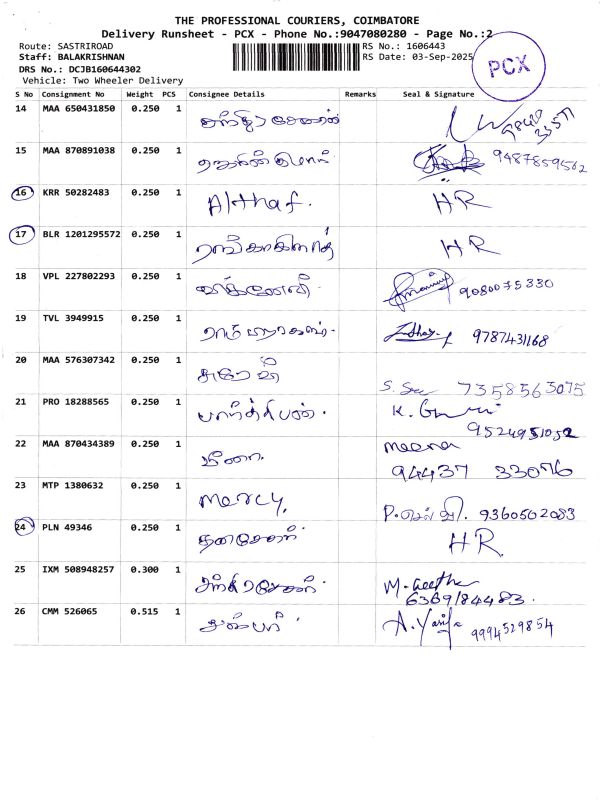 THE PROFESSIONAL COURIERS, COIMBATORE
Delivery Runsheet - PCX - Phone No.:9047080280 - Page No.:2
Route: SASTRIROAD RS No.: 1606443
Staff: BALAKRISHNAN RS Date: 03-Sep-2025
DRS No.: DCJB160644302
Vehicle: Two Wheeler Delivery
PCX
S No Consignment No Weight PCS Consignee Details Remarks Seal & Signature
14 MAA 650431850 0.250 1
15 MAA 870891038 0.250 1 9487859562
16 KRR 50282483 0.250 1 Althaf. HR
17 BLR 1201295572 0.250 1 HR
18 VPL 227802293 0.250 1 9080075330
19 TVL 3949915 0.250 1 9787431168
20 MAA 576307342 0.250 1 சுரேஷ் 7358563075
21 PRO 18288565 0.250 1 பார்த்திபன். 9524951052
22 MAA 870434389 0.250 1 மீனா. meena 94437 33076
23 MTP 1380632 0.250 1 Mercy. 9360502083
24 PLN 49346 0.250 1 தனசேகர் HR
25 IXM 508948257 0.300 1 சந்திரசேகர். M. Geetha 6369184483.
26 CMM 526065 0.515 1 9994529854